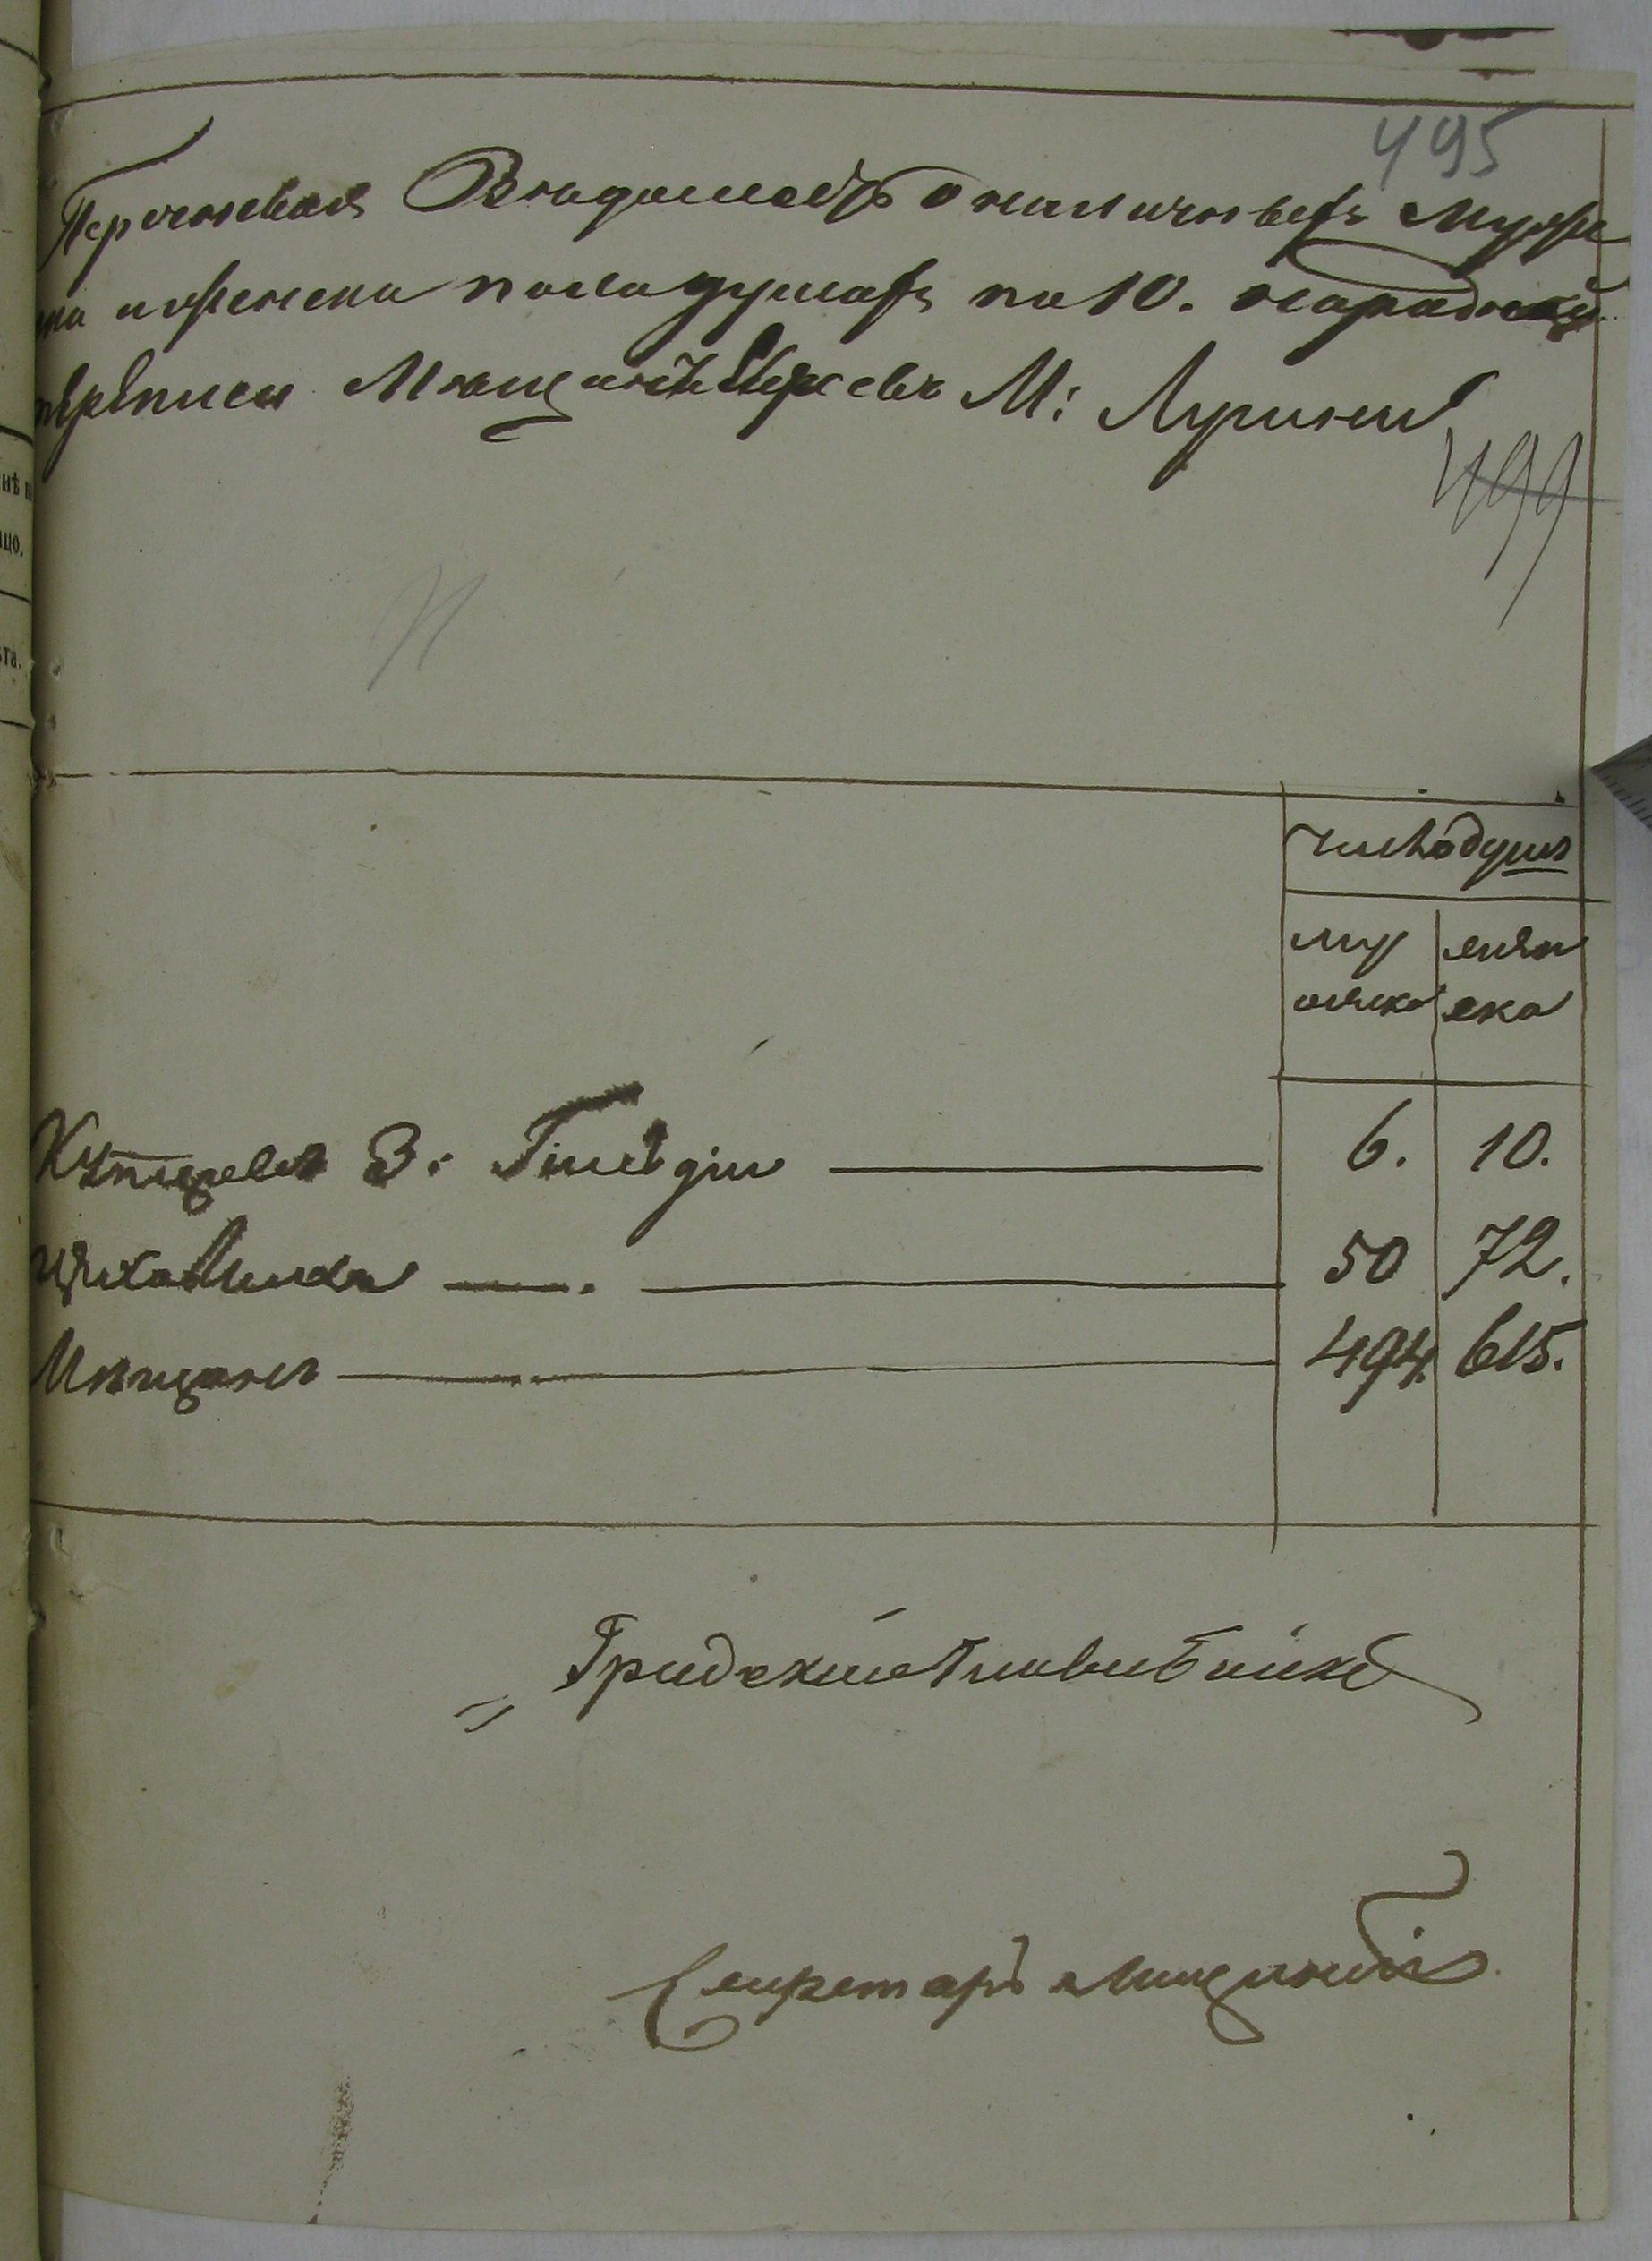 495
Перечневая Вѣдомость о наличныхъ муже
ска и женска пола душахъ по 10. народной
переписи Мещанъ Евреевъ М: Лугинъ
499
нѣ
що.
та.
Число душъ
му женс
жеска ска
Купцевъ 3: Гильдіи 6. 10.
Цеховыхъ 50 72.
Мещанъ 494. 615.
Градскій Глава
Секретарь